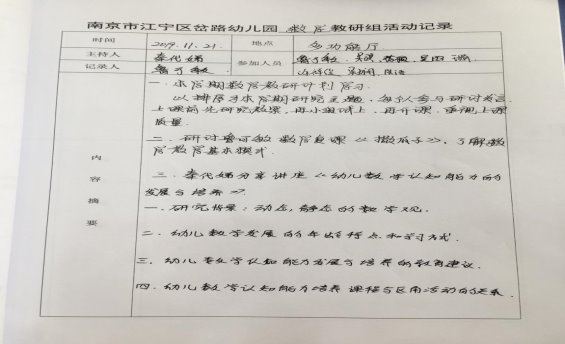 南京市江宁区岔路幼儿园 数学 教研组活动记录
时间 2019.11.21. 地点 多功能厅
主持人 秦代娣 参加人员
记录人
内容摘要
一. 本学期数学教研计划学习.
以排序为本学期研究主题, 每个人参与研讨发言.
上课前先研究教案, 再小组试上, 再开课, 重视上课
质量.
二. 研讨 敏 数学复课《撒瓜子》, 了解数
学教学基本模式.
三. 秦代娣分享讲座《幼儿数学认知能力的
发展与培养》.
一. 研究背景: 动态, 静态的数学观.
二. 幼儿数学发展的年龄特点和学习方式.
三. 幼儿数学认知能力发展与培养的教育建议.
四. 幼儿数学认知能力培养 课程与区角活动的关系.